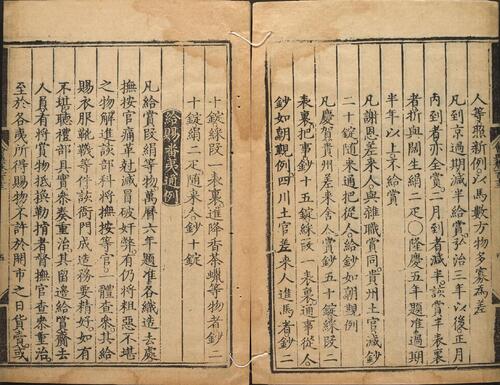 人等照新例以馬數方物多寡為差
凡到京過期減半給賞弘治三年以後正月
內到者亦全賞二月到者減半該賞半表裏
者折與闊生絹二疋○隆慶五年題准過期
半年以上不給賞
凡謝恩差來人與雜職賞同貴州土官減鈔
二十錠隨來通把從人給鈔如朝覲例
凡慶賀貴州差來舍人賞鈔五十錠綵段二
表裏把事鈔十五錠綵段一表裏通事從人
鈔如朝覲例四川土官差來人進馬者鈔二
十錠綵段一表裏進降香茶蠟等物者鈔二
十錠絹二疋隨來人鈔十錠
給賜番夷通例
凡給賞段絹等物萬曆六年題准各織造去處
撫按官痛革尅減冒破奸弊有仍將粗惡不堪
之物解進該部科將撫按等官一體查參其給
賜衣服靴韈等件該衙門成造務要精好如有
不堪聽禮部具實參奏重治其留邊給賞齎去
人員有將賞物抵換勒揹者督撫官查參重治
至於各夷所得賜物不許於開市之日貨賣或